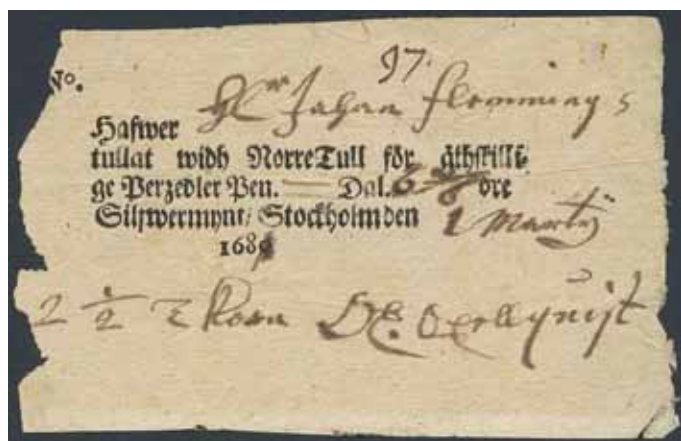 No. 97.
Hr Johan Flemmings
Hafwer
tullat widh NorreTull för åthskilli-
ge Perzedler Pen. Dal. öre
Silfwermynt/ Stockholm den 1 Martij
168
2 1/2 Korn